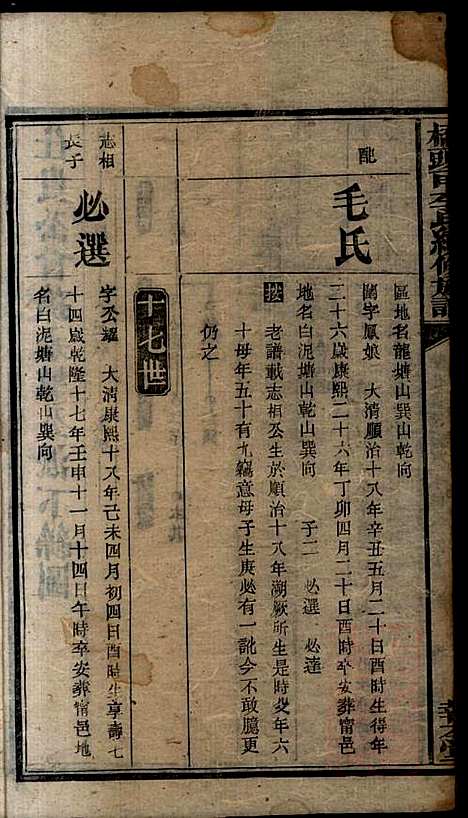 區地名龍塘山巽山乾向
配
毛氏
閨字鳳娘　大清順治十八年辛丑五月二十日酉時生得年
三十六歲康熙二十六年丁卯四月二十日酉時卒安葬甯邑
地名白泥塘山乾山巽向　子二　必選　必達
按　老譜載志相公生於順治十八年溯厥所生是時父年六
十母年五十有九竊意母子生庚必有一訛今不敢臆更
仍之
十七世
志相
長子
必選
字丕耀　大清康熙十八年己未四月初四日酉時生享壽七
十四歲乾隆十七年壬申十一月十四日午時卒安葬甯邑地
名白泥塘山乾山巽向